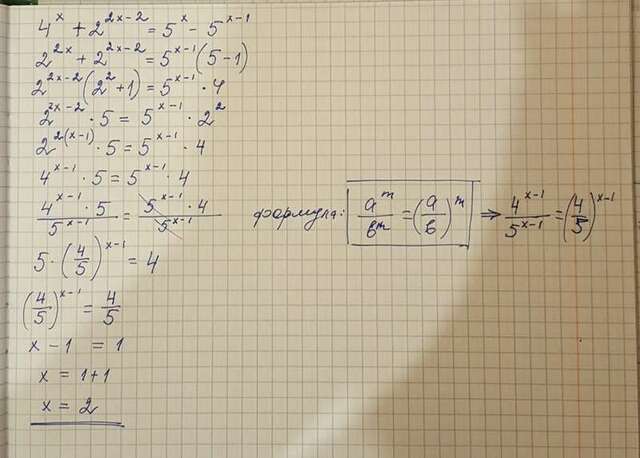 4^x + 2^(2x-2) = 5^x - 5^(x-1)
2^(2x) + 2^(2x-2) = 5^(x-1) (5-1)
2^(2x-2) (2^2 + 1) = 5^(x-1) · 4
2^(2x-2) · 5 = 5^(x-1) · 2^2
2^(2(x-1)) · 5 = 5^(x-1) · 4
4^(x-1) · 5 = 5^(x-1) · 4
(4^(x-1) · 5)/5^(x-1) = (5^(x-1) · 4)/5^(x-1) формула: a^m/b^m = (a/b)^m ⇒ 4^(x-1)/5^(x-1) = (4/5)^(x-1)
5 · (4/5)^(x-1) = 4
(4/5)^(x-1) = 4/5
x - 1 = 1
x = 1+1
x = 2